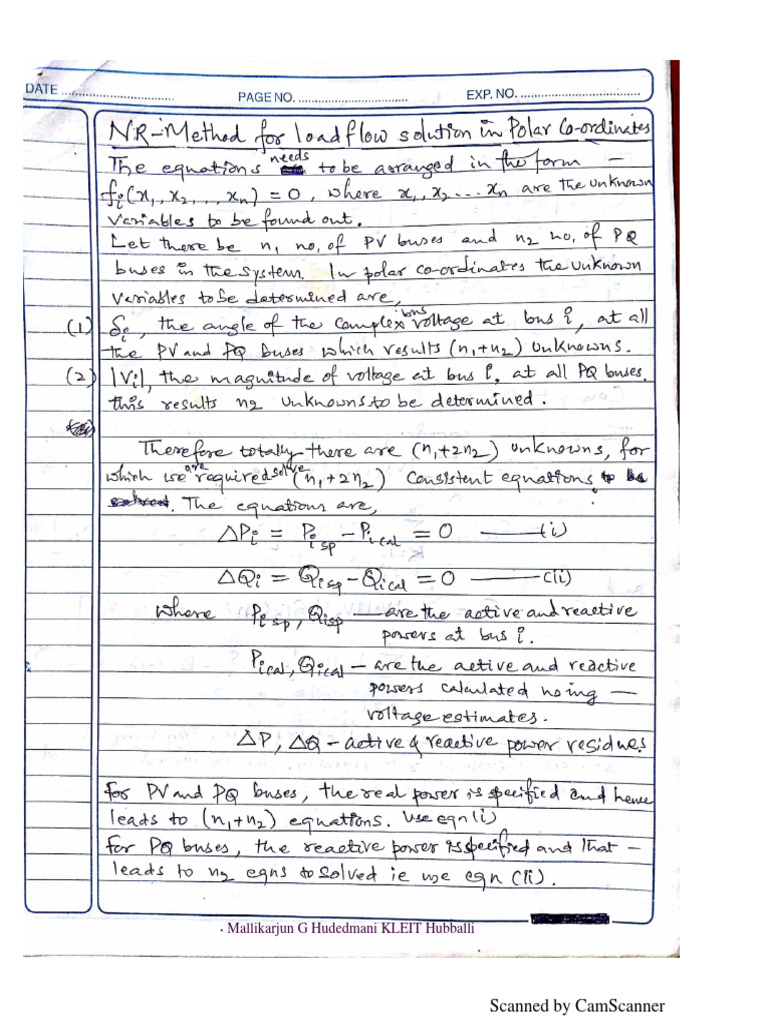 DATE
PAGE NO.
EXP. NO.
NR-Method for loadflow solution in Polar Co-ordinates
The equations needs to be arranged in the form —
fi(x1, x2, ..., xn) = 0, where x1, x2 ... xn are the unknown
variables to be found out.
Let there be n1 no. of PV buses and n2 no. of PQ
buses in the system. In polar co-ordinates the unknown
variables to be determined are,
(1) δi, the angle of the complex bus voltage at bus i, at all
the PV and PQ buses which results (n1+n2) unknowns.
(2) |Vi|, the magnitude of voltage at bus i, at all PQ buses.
this results n2 unknowns to be determined.
Therefore totally there are (n1+2n2) unknowns, for
which we are required solve (n1+2n2) consistent equations
. The equations are,
ΔPi = Pisp – Pical = 0 —— (i)
ΔQi = Qisp – Qical = 0 —— (ii)
where Pisp, Qisp — are the active and reactive
powers at bus i.
Pical, Qical – are the active and reactive
powers calculated using —
voltage estimates.
ΔP, ΔQ – active & reactive power residues
for PV and PQ buses, the real power is specified and hence
leads to (n1+n2) equations. use eqn (i)
for PQ buses, the reactive power is specified and that —
leads to n2 eqns to solved ie use eqn (ii).
Mallikarjun G Hudedmani KLEIT Hubballi
Scanned by CamScanner